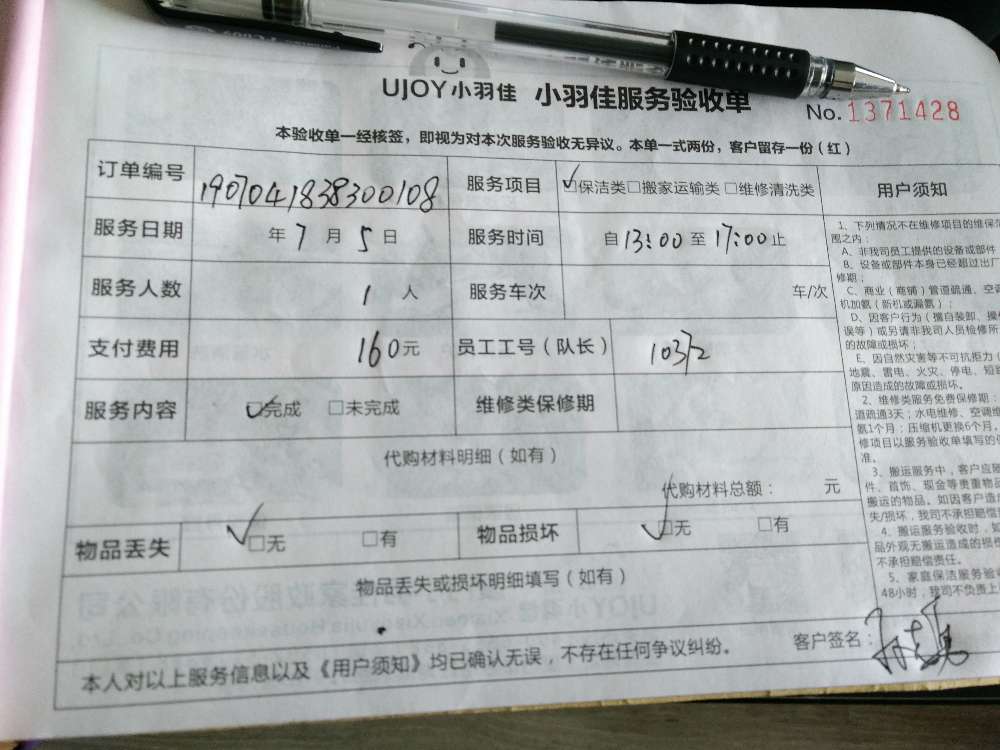 UJOY小羽佳 小羽佳服务验收单
No.1371428
本验收单一经核签，即视为对本次服务验收无异议。本单一式两份，客户留存一份（红）
订单编号 190704183830010​8 服务项目 ☑保洁类□搬家运输类□维修清洗类 用户须知
服务日期 年7月5日 服务时间 自13:00至17:00止
服务人数 1人 服务车次 车/次
支付费用 160元 员工工号（队长）
服务内容 ☑完成 □未完成 维修类保修期
代购材料明细（如有）
代购材料总额： 元
物品丢失 ☑无 □有 物品损坏 ☑无 □有
物品丢失或损坏明细填写（如有）
客户签名：
本人对以上服务信息以及《用户须知》均已确认无误，不存在任何争议纠纷。
1、下列情况不在维修项目的维保范
围之内：
A、非我司员工提供的设备或部件
B、设备或部件本身已经超过出厂
修期；
C、商业（商铺）管道疏通、空调
机加氨（新机或漏氨）；
D、因客户行为（擅自装卸、操作
误等）或另请非我司人员检修所
的故障或损坏；
E、因自然灾害等不可抗拒力（
地震、雷电、火灾、停电、短路
原因造成的故障或损坏。
2、维修类服务免费保修期：
道疏通3天；水电维修、空调维
氨1个月；压缩机更换6个月，
修项目以服务验收单填写的保
准。
3、搬运服务中，客户应随
件、首饰、现金等贵重物品
搬运的物品。如因客户造成
失/损坏，我司不承担赔偿
4、搬运服务验收时，如
品外观无搬运造成的损伤
不承担赔偿责任。
5、家庭保洁服务验收
48小时，我司不负责上